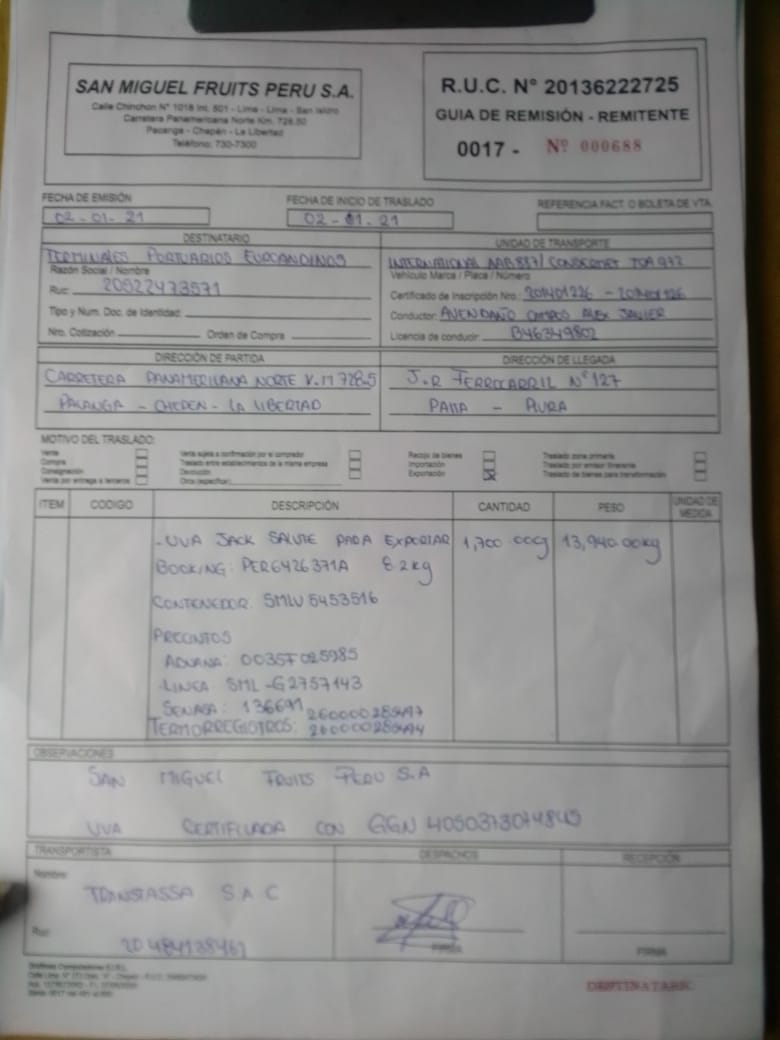 SAN MIGUEL FRUITS PERU S.A.
Calle Chinchon N° 1018 Int. 501 - Lima - Lima - San Isidro
Carretera Panamericana Norte Km. 728.50
Pacanga - Chepén - La Libertad
Teléfono: 730-7300
R.U.C. N° 20136222725
GUIA DE REMISIÓN - REMITENTE
0017 - Nº 000688
FECHA DE EMISIÓN
02-01-21
FECHA DE INICIO DE TRASLADO
02-01-21
REFERENCIA FACT. O BOLETA DE VTA.
DESTINATARIO
TERMINALES PORTUARIOS EUROANDINOS
Razón Social / Nombre
Ruc: 20522473571
Tipo y Num. Doc. de Identidad:
Nro. Cotización Orden de Compra
UNIDAD DE TRANSPORTE
INTERNATIONAL
Vehículo Marca / Placa / Número
Certificado de Inscripción Nro.:
Conductor: AVENDAÑO CAMPOS ALEX JAVIER
Licencia de conducir: B46349802
DIRECCIÓN DE PARTIDA
CARRETERA PANAMERICANA NORTE K.M 728.5
PACANGA - CHEPEN - LA LIBERTAD
DIRECCIÓN DE LLEGADA
J.R FERROCARRIL N° 127
PAITA - PIURA
MOTIVO DEL TRASLADO:
Venta
Compra
Consignación
Venta por entrega a terceros
Venta sujeta a confirmación por el comprador
Traslado entre establecimientos de la misma empresa
Devolución
Otros (especificar)
Recojo de bienes
Importación
Exportación
Traslado zona primaria
Traslado por emisor itinerante
Traslado de bienes para transformación
ITEM CODIGO DESCRIPCIÓN CANTIDAD PESO UNIDAD DE MEDIDA
- UVA JACK SALUTE PARA EXPORTAR 13,940.00kg
BOOKING: PER6426371A 8.2kg
CONTENEDOR: SMLU 5453516
PRECINTOS
ADUANA: 0035F025985
LINEA: SML-G2757143
SENASA: 136691
TERMORREGISTROS:
OBSERVACIONES
SAN MIGUEL FRUITS PERU S.A
UVA CERTIFICADA CON GGN
TRANSPORTISTA
Nombre
TRANSTASSA S A C
Ruc:
DESPACHOS
FIRMA
RECEPCIÓN
FIRMA
DESTINATARIO